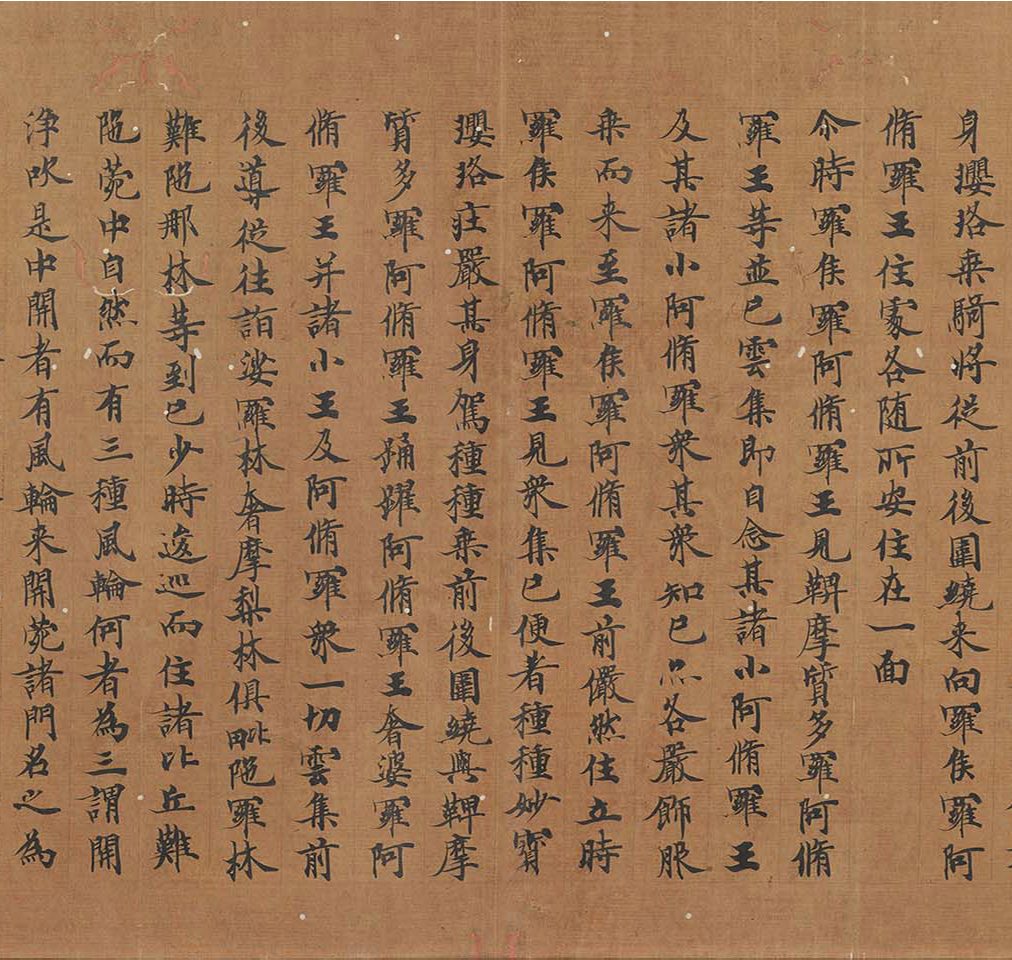 身瓔珞乗騎将従前後圍繞来向羅睺羅阿
脩羅王住處各随所安住在一面
尒時羅睺羅阿脩羅王見鞞摩質多羅阿脩
羅王等並已雲集即自念其諸小阿脩羅王
及其諸小阿脩羅衆其衆知已亦各嚴飾服
乗而来至羅睺羅阿脩羅王前儼然住立時
羅睺羅阿脩羅王見衆集已便著種種妙寳
瓔珞莊嚴其身駕種種乗前後圍繞與鞞摩
質多羅阿脩羅王踊躍阿脩羅王奢婆羅阿
脩羅王并諸小王及阿脩羅衆一切雲集前
後導従往詣娑羅林奢摩梨林俱毗陁羅林
難陁那林等到已少時逡巡而住諸比丘難
陁菀中自然而有三種風輪何者為三謂開
浄吹是中開者有風輪来開菀諸門名之為